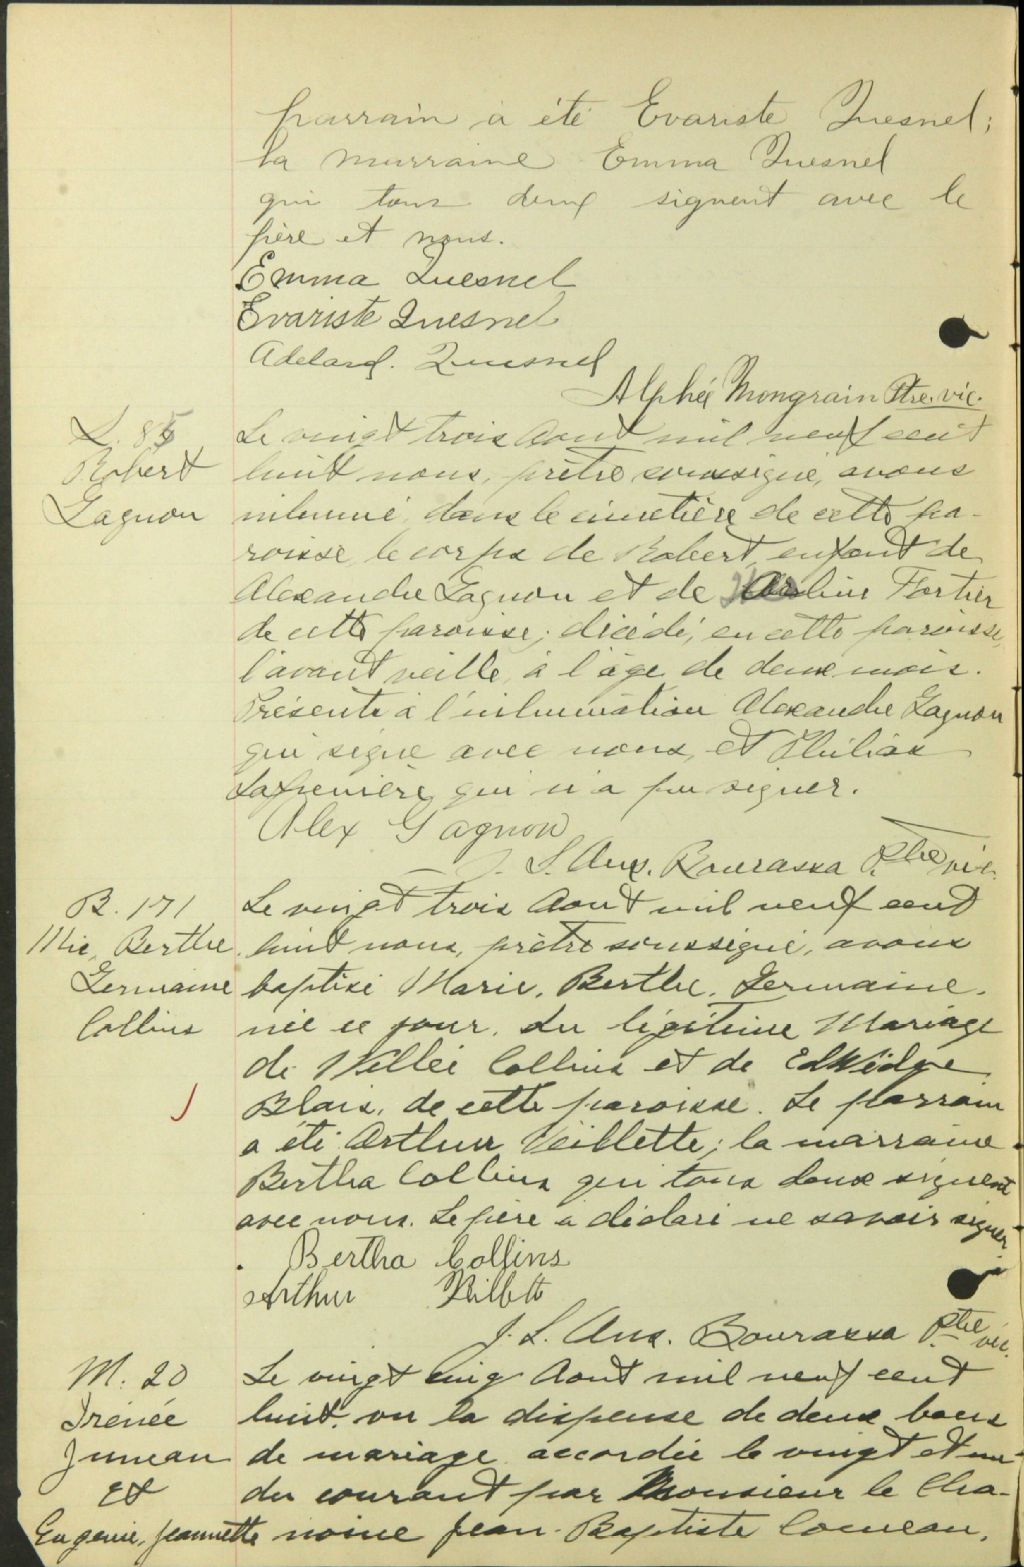 parrain a été Evariste Quesnel;
la marraine Emma Quesnel
qui tous deux signent avec le
père et nous.
Emma Quesnel
Evariste Quesnel
Adelard. Quesnel
Alphée Mongrain Ptre. vic.
S. 85
Robert
Gagnon
Le vingt trois Aout mil neuf cent
huit nous, prêtre soussigné, avons
inhumé dans le cimetière de cette pa-
roisse le corps de Robert, enfant de
Alexandre Gagnon et de Fortier
de cette paroisse; décédé, en cette paroisse,
l'avant veille, à l'âge de deux mois.
Présents à l'inhumation Alexandre Gagnon
qui signe avec nous, et
Lafrenière qui n'a pu signer.
Alex Gagnon
J. L. Ans. Bourassa Ptre vic.
B. 171
Mie, Berthe
Germaine
Collins
Le vingt trois Aout mil neuf cent
huit nous, prêtre soussigné, avons
baptisé Marie, Berthe, Germaine,
née ce jour, du légitime Mariage
de Willie Collins et de Edwidge
Blais, de cette paroisse. Le parrain
a été Arthur Veillette; la marraine
Bertha Collins qui tous deux signent
avec nous. Le père a déclaré ne savoir signer
Bertha Collins
Arthur
J. L. Ans. Bourassa Ptre vic.
M. 20
Irénée
Juneau
et
Eugenie, Jeannette
Le vingt cinq Aout mil neuf cent
huit, vu la dispense de deux bans
de mariage accordée le vingt et un
du courant par Monsieur le Cha-
noine Jean-Baptiste Comeau,